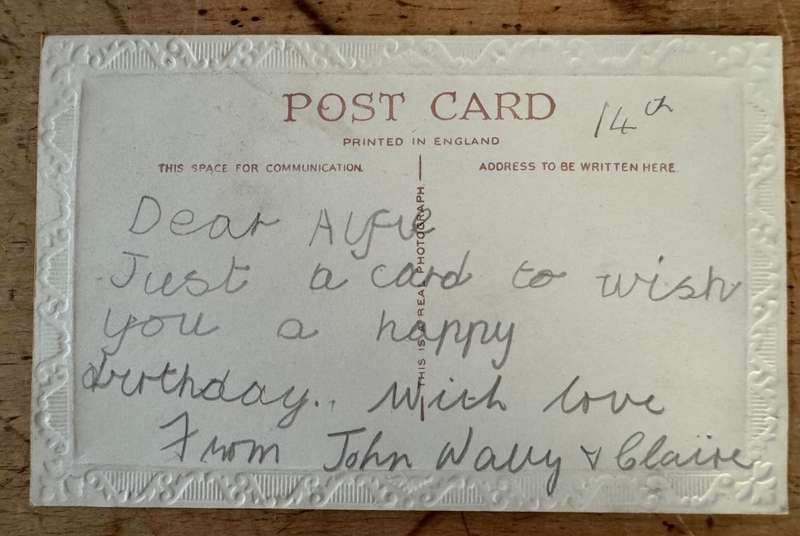 POST CARD
14th
PRINTED IN ENGLAND
THIS SPACE FOR COMMUNICATION.
ADDRESS TO BE WRITTEN HERE.
THIS IS A REAL PHOTOGRAPH.
Dear Alfie
Just a card to wish
you a happy
birthday.. With love
From John Wally & Claire